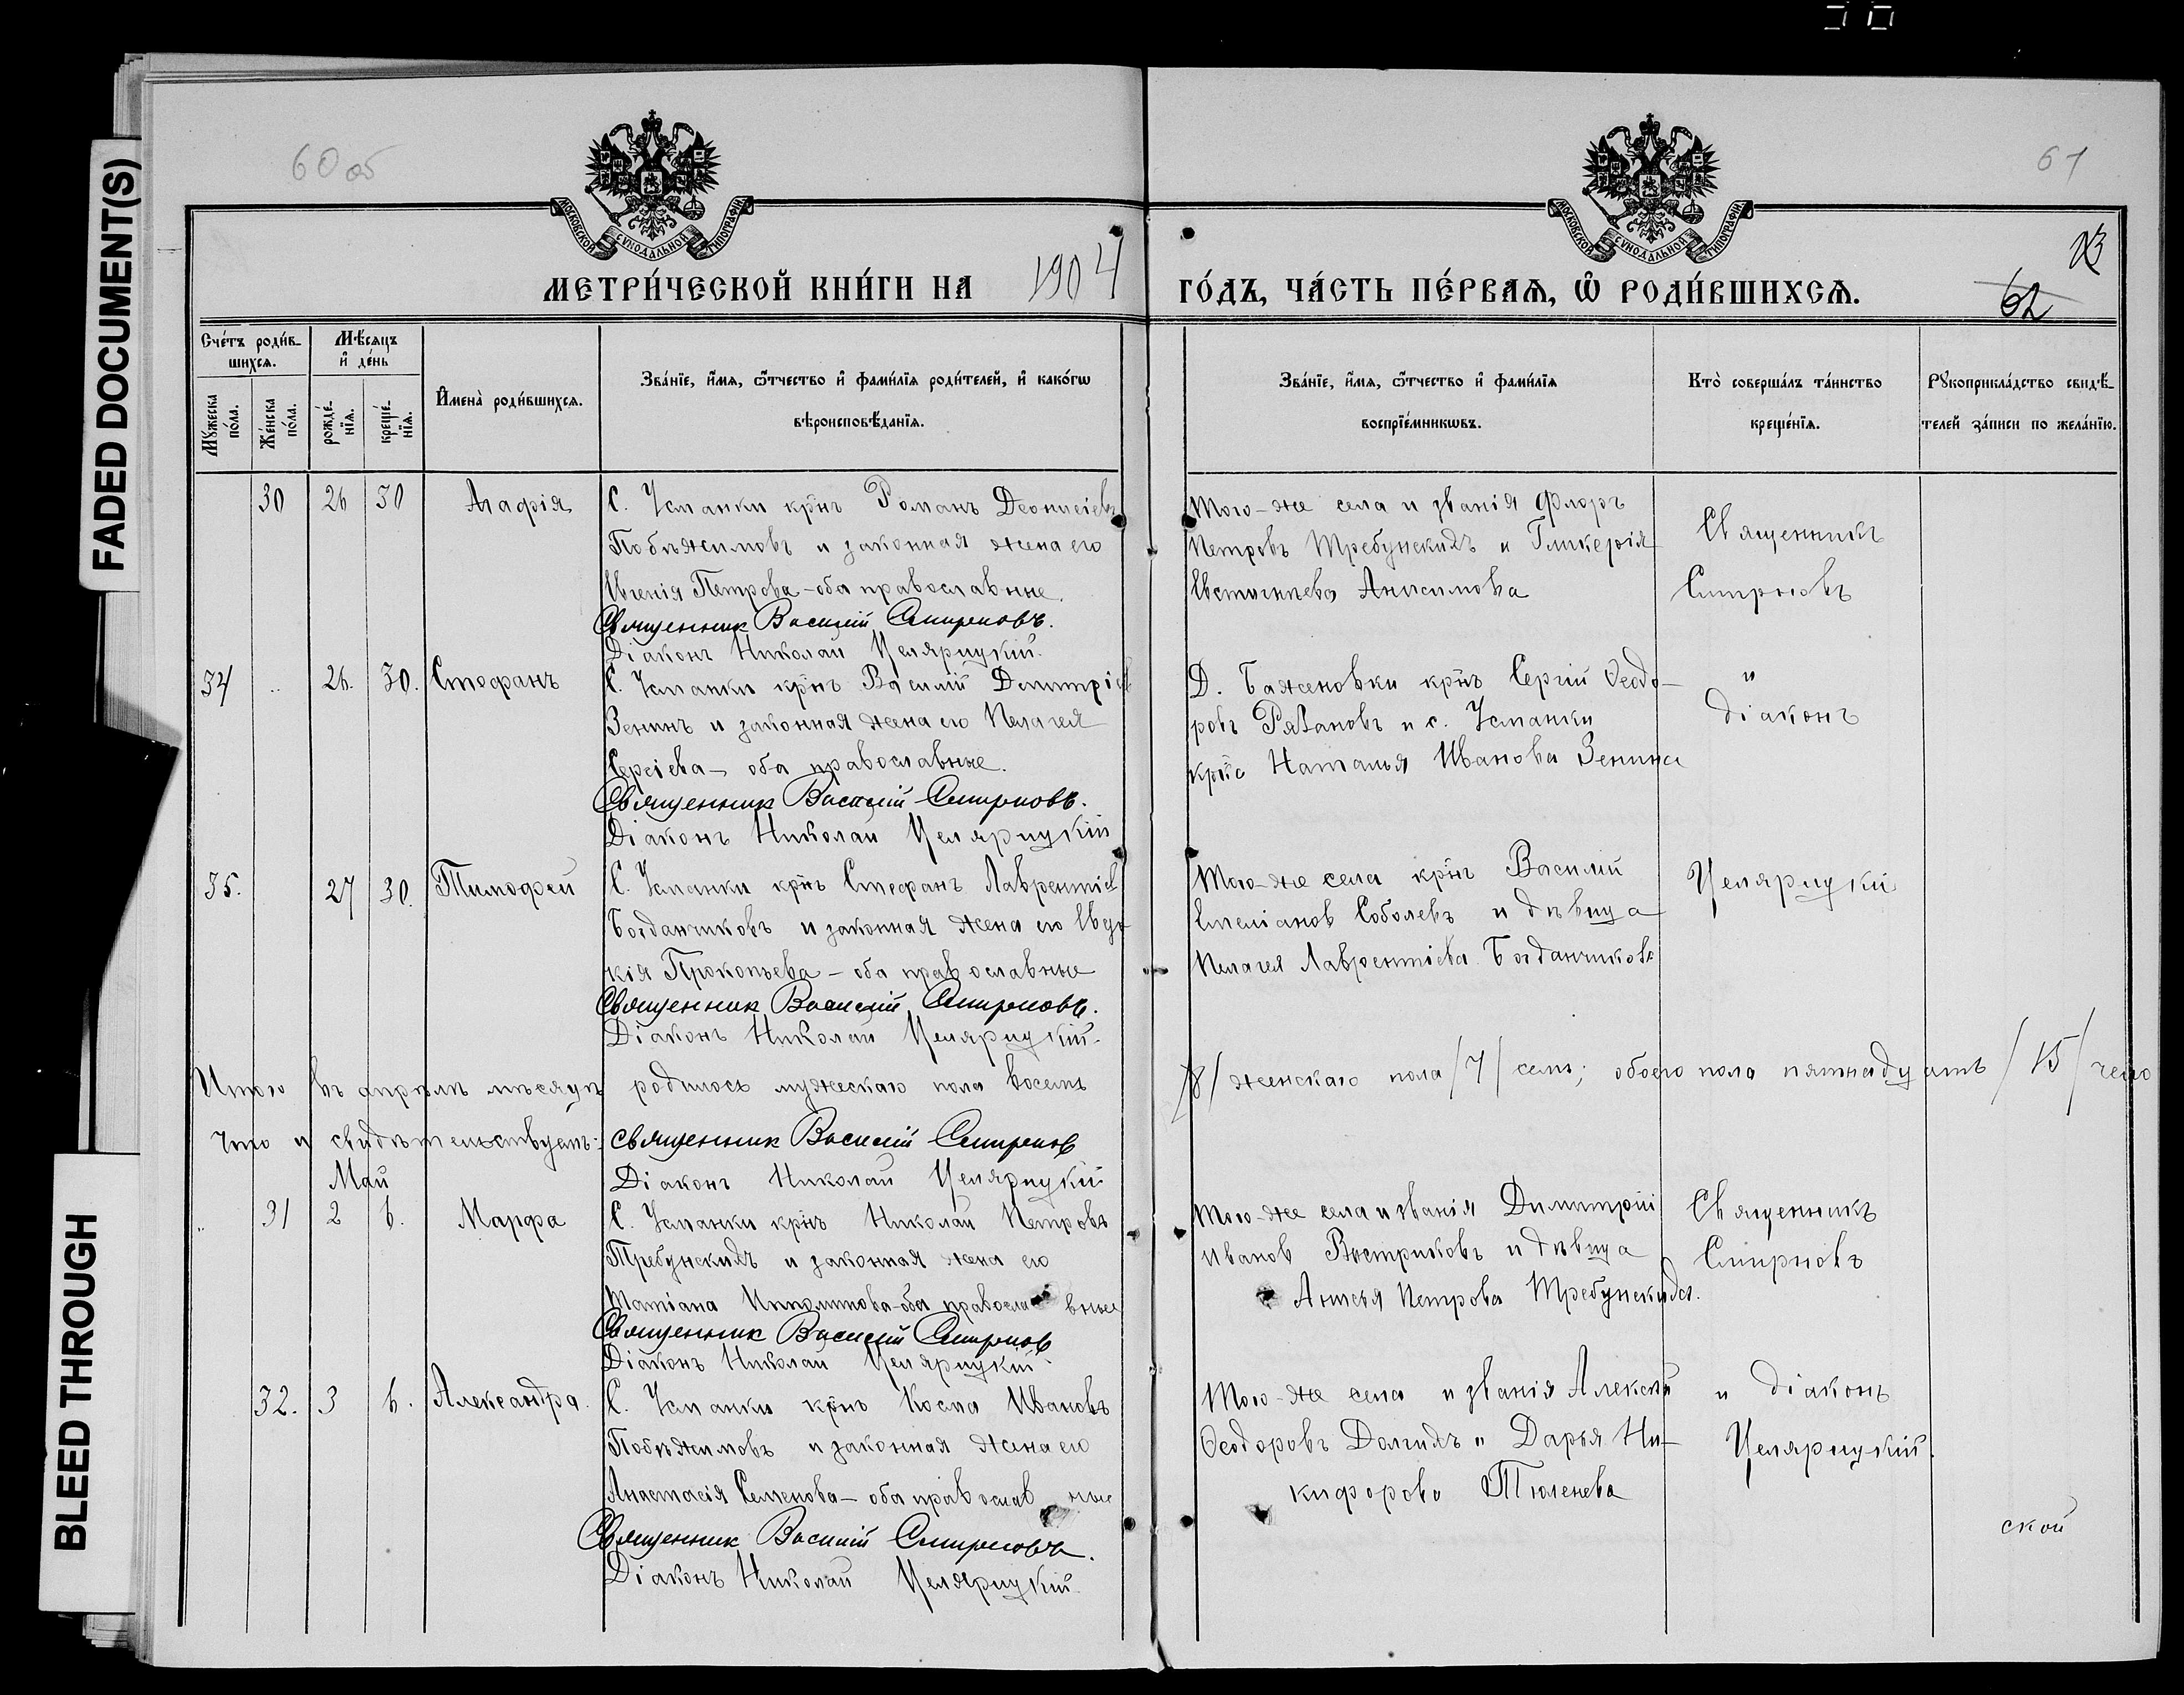 FADED DOCUMENT(S)
BLEED THROUGH
60 об
61
МОСКОВСКОЙ СУНОДАЛЬНОЙ ТИПОГРАФІИ
МОСКОВСКОЙ СУНОДАЛЬНОЙ ТИПОГРАФІИ
62
МЕТРИ́ЧЕСКОЙ КНИ́ГИ НА 1904 ГО́ДЪ, ЧА́СТЬ ПЕ́РВАѦ, Ѡ҆ РОДИ́ВШИХСѦ.
Сче́тъ роди́в-
шихсѧ.
Мꙋ́жеска по́ла.
Же́нска по́ла.
Мѣ́сяцъ
и҆ де́нь
рожде́-
нїѧ.
креще́-
нїѧ.
И҆мена̀ роди́вшихсѧ.
Зва́нїе, и҆́мѧ, ѻ҆́тчество и҆ фами́лїѧ роди́телей, и҆ како́гѡ
вѣроисповѣ́данїѧ.
Зва́нїе, и҆́мѧ, ѻ҆́тчество и҆ фами́лїѧ
воспрїе́мникѡвъ.
Кто̀ соверша́лъ та́инство
креще́нїѧ.
Рꙋкоприкла́дство свидѣ́-
телей за́писи по жела́нїю.
30 26 30 Агафія С. Усманки крнъ Романъ Деонисіевъ
Побѣжимовъ и законная жена его
Евгенія Петрова - оба православные.
Священник Василій Смирновъ.
Діаконъ Николай Целярицкій.
Того-же села и званія Флоръ
Петровъ Требунскихъ и Гликерія
Евстигнѣева Анисимова
Священникъ
Смирновъ
34 .. 26. 30. Стефанъ С. Усманки крнъ Василій Димитріев
Зенинъ и законная жена его Пелагея
Сергіева - оба православные.
Священник Василій Смирновъ.
Діаконъ Николай Целярицкій
Д. Баженовки крнъ Сергій Ѳеодо-
ровъ Рязановъ и с. Усманки
крнка Наталья Иванова Зенина
и
діаконъ
35. 27 30. Тимофей С. Усманки крнъ Стефанъ Лаврентіев
Богданчиковъ и законная жена его Евдо
кія Прокопьева - оба православные
Священник Василій Смирновъ.
Діаконъ Николай Целярицкій.
Того-же села крнъ Василій
Емеліанов Соболевъ и дѣвица
Пелагея Лаврентіева Богданчикова
Целярицкій
Итого въ апрѣлѣ мѣсяцѣ родилось мужескаго пола восемь /8/ женскаго пола /7/ семь; обоего пола пятнадцать /15/ чело
Что и свидѣтельствуемъ: священник Василій Смирнов
Діаконъ Николай Целярицкій
Май
.. 31 2 6. Марфа С. Усманки крнъ Николай Петровъ
Требунскихъ и законная жена его
Татіана Ипполитова - оба православные
Священник Василій Смирнов
Діаконъ Николай Целярицкій.
Того-же села и званія Димитрій
Иванов Востриковъ и дѣвица
Анисья Петрова Требунскихъ.
Священникъ
Смирновъ
32. 3 6. Александра. С. Усманки крнъ Косма Ивановъ
Побѣжимовъ и законная жена его
Анастасія Семенова - оба православные
Священник Василій Смирновъ.
Діаконъ Николай Целярицкій.
Того-же села и званія Алексѣй
Ѳеодоровъ Долгихъ и Дарья Ни-
кифорова Тюленева
и діаконъ
Целярицкій.
ской